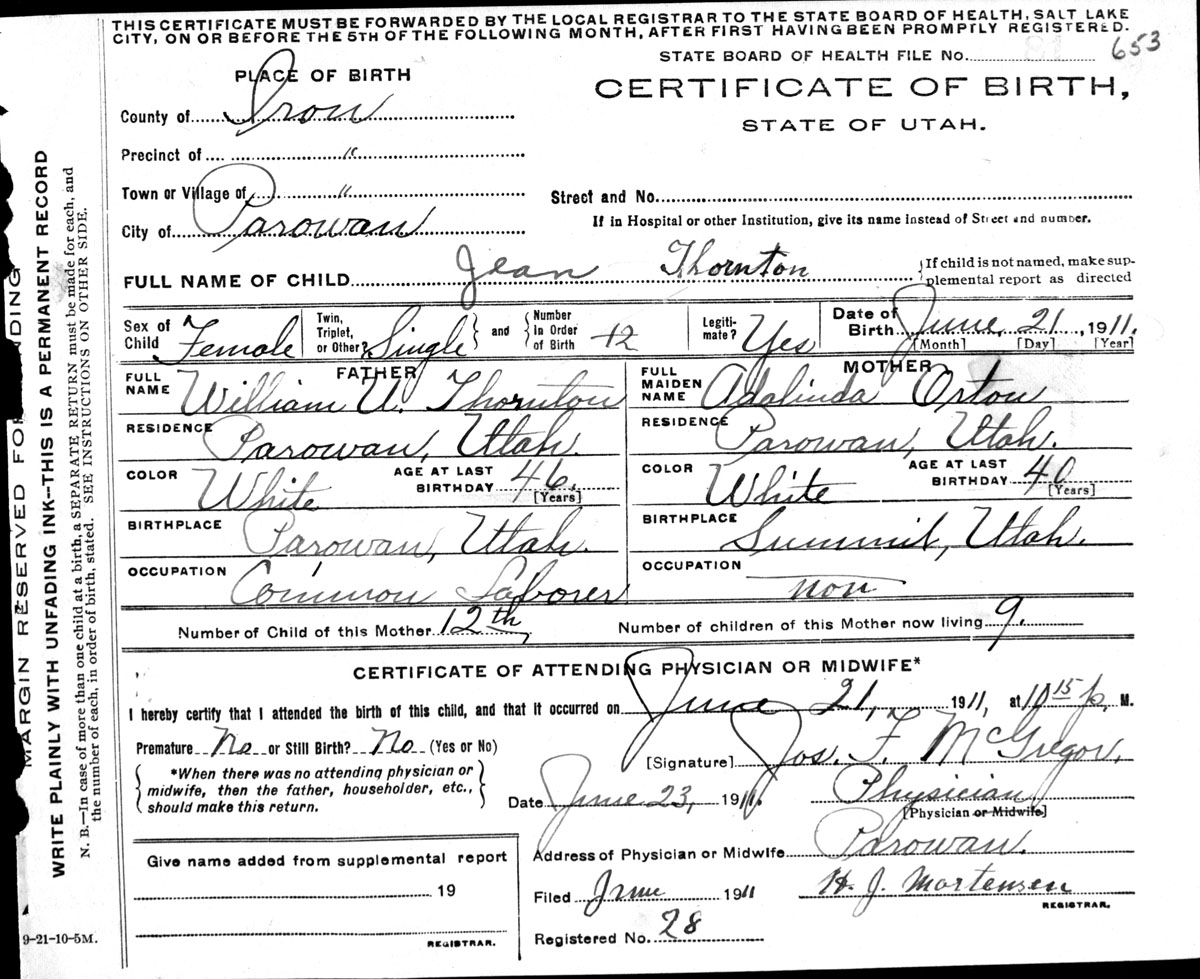 THIS CERTIFICATE MUST BE FORWARDED BY THE LOCAL REGISTRAR TO THE STATE BOARD OF HEALTH, SALT LAKE
CITY, ON OR BEFORE THE 5TH OF THE FOLLOWING MONTH, AFTER FIRST HAVING BEEN PROMPTLY REGISTERED.
STATE BOARD OF HEALTH FILE NO. 653
PLACE OF BIRTH
CERTIFICATE OF BIRTH,
STATE OF UTAH.
County of Iron
Precinct of "
Town or Village of "
City of Parowan
Street and No.
If in Hospital or other Institution, give its name instead of Street and number.
FULL NAME OF CHILD Jean Thornton
{If child is not named, make sup-
plemental report as directed
Sex of Child Female
Twin, Triplet, or Other? Single } and { Number In Order of Birth 12
Legiti-mate? Yes
Date of Birth June, 21, 1911.
[Month] [Day] [Year]
FATHER
FULL NAME William U. Thornton
RESIDENCE Parowan, Utah.
COLOR White AGE AT LAST BIRTHDAY 46. [Years]
BIRTHPLACE Parowan, Utah.
OCCUPATION Common Laborer
MOTHER
FULL MAIDEN NAME Adalinda Orton
RESIDENCE Parowan, Utah.
COLOR White AGE AT LAST BIRTHDAY 40 [Years]
BIRTHPLACE Summit, Utah.
OCCUPATION non
Number of Child of this Mother 12th, Number of children of this Mother now living 9.
CERTIFICATE OF ATTENDING PHYSICIAN OR MIDWIFE*
I hereby certify that I attended the birth of this child, and that it occurred on June 21, 1911, at 10 15 p, M.
Premature No or Still Birth? No (Yes or No)
*When there was no attending physician or
midwife, then the father, householder, etc.,
should make this return.
[Signature] Jos. F. McGregor,
Date June 23, 1911. Physician
[Physician or Midwife]
Address of Physician or Midwife Parowan.
Filed June 1911 H. J. Mortensen
REGISTRAR.
Registered No. 28
Give name added from supplemental report
19
REGISTRAR.
MARGIN RESERVED FOR
WRITE PLAINLY WITH UNFADING INK-THIS IS A PERMANENT RECORD
N. B.-In case of more than one child at a birth, a SEPARATE RETURN must be made for each, and
the number of each, in order of birth, stated. SEE INSTRUCTIONS ON OTHER SIDE.
9-21-10-5M.